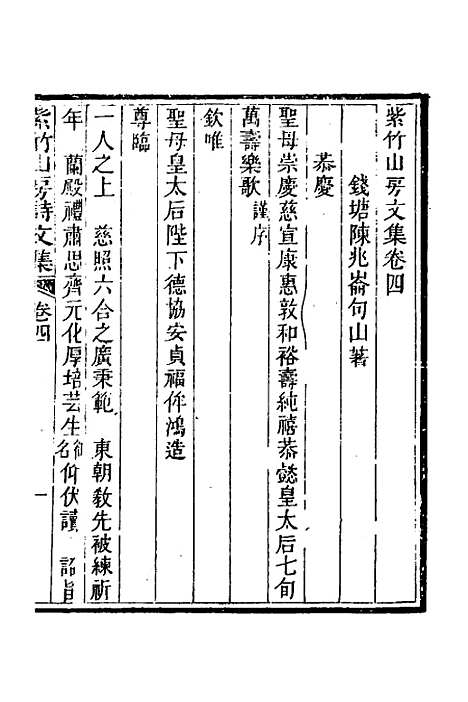 紫竹山房文集卷四
錢塘陳兆崙句山著
恭慶
聖母崇慶慈宣康惠敦和裕壽純禧恭懿皇太后七旬
萬壽樂歌謹序
欽唯
聖母皇太后陛下德協安貞福侔鴻造
尊臨
一人之上　慈照六合之廣秉範　東朝敎先被練祈
年　蘭殿禮肅思齊元化厚培芸生仰伏讀　詔旨
紫竹山房詩文集　卷四　一